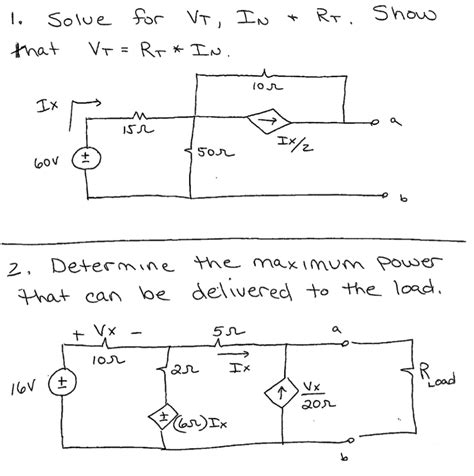 1. Solve for VT, IN + RT. Show
that VT = RT * IN.
10Ω
Ix
15Ω
Ix/2
a
60V
50Ω
b
2. Determine the maximum power
that can be delivered to the load.
+ Vx -
5Ω
a
10Ω
2Ω
Ix
16V
Vx
20Ω
RLoad
(6Ω)Ix
b